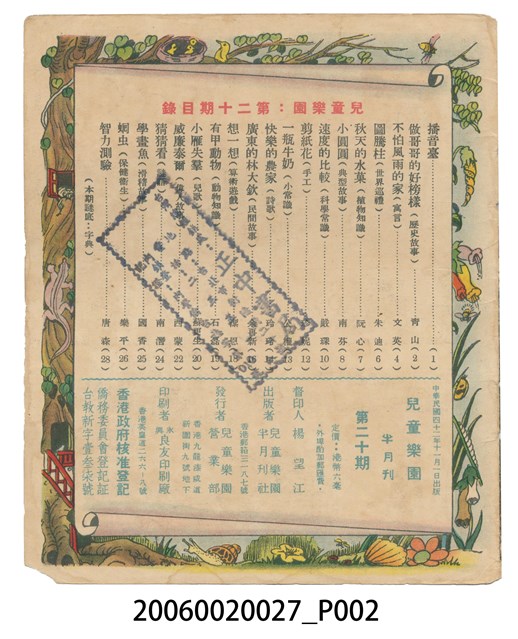 兒童樂園：第二十期目錄
播音臺………(1)
做哥哥的好榜樣(歷史故事)………青山(2)
不怕風雨的家(寓言)………文英(4)
圖騰柱(世界巡禮)………朱迪(6)
秋天的水菓(植物知識)………阮心(7)
小圓圓(典型故事)………南芬(8)
速度的比較(科學常識)………嚴璞(10)
剪紙花(手工)
一瓶牛奶(小常識)
快樂的農家(詩歌)
廣東的林大欽(民間故事)
想一想(算術遊戲)
有甲動物(動物知識)
小雁失羣(兒歌)
威廉泰爾
猜猜看
學畫魚
蛔虫(保健衛生)………樂平(26)
智力測驗………唐森(28)
(本期謎底：字典)
中華民國四十二年十一月一日出版
兒童樂園
半月刊
第二十期
定價：港幣六毫
外埠酌加郵運費
督印人 楊望江
出版者 兒童樂園半月刊社
香港郵箱三一八七號
發行者 兒童樂園營業部
香港九龍
新圍街九號地下
印刷者 永興 良友印刷廠
香港政府核准登記
僑務委員會登記証
台教新字壹叁柒號
20060020027_P002